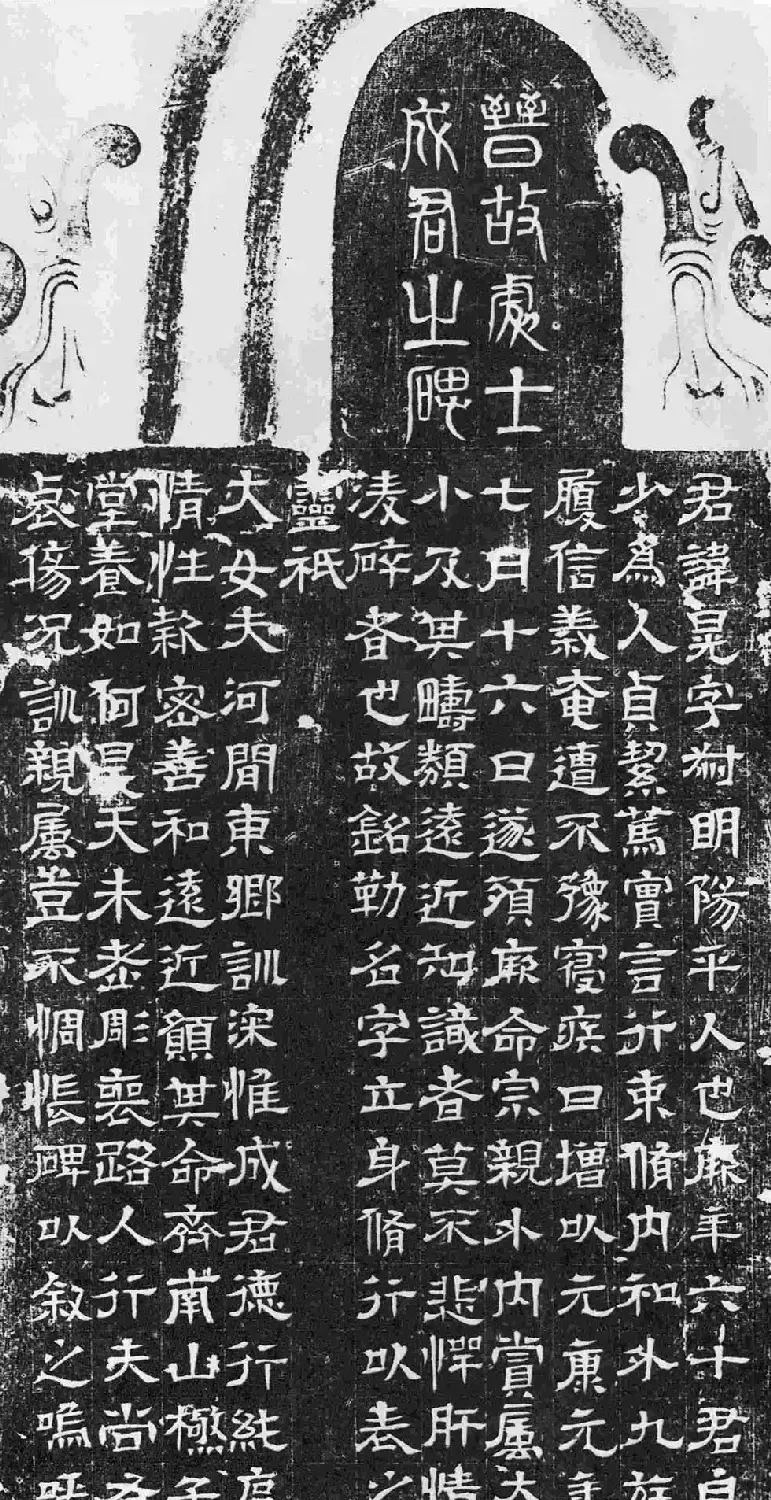 晉故處士
成君之碑
君諱晃字叔明陽平人也年六十君自
少為人貞絜篤實言行束脩內和外九族
履信義奄遭不豫寑疾日增以元康元年
七月十六日遂殞厥命宗親外內賞屬大
小及其疇類遠近知識者莫不悲憚肝情
淩碎者也故銘勒名字立身脩行以表之
靈祇
大女夫河間東鄉訓深惟成君德行純
情性款密善和遠近願其命齊南山極子
堂養如何昊天未耋彫喪路人行夫尚
傷況訓親屬豈不惆悵碑以敘之嗚呼